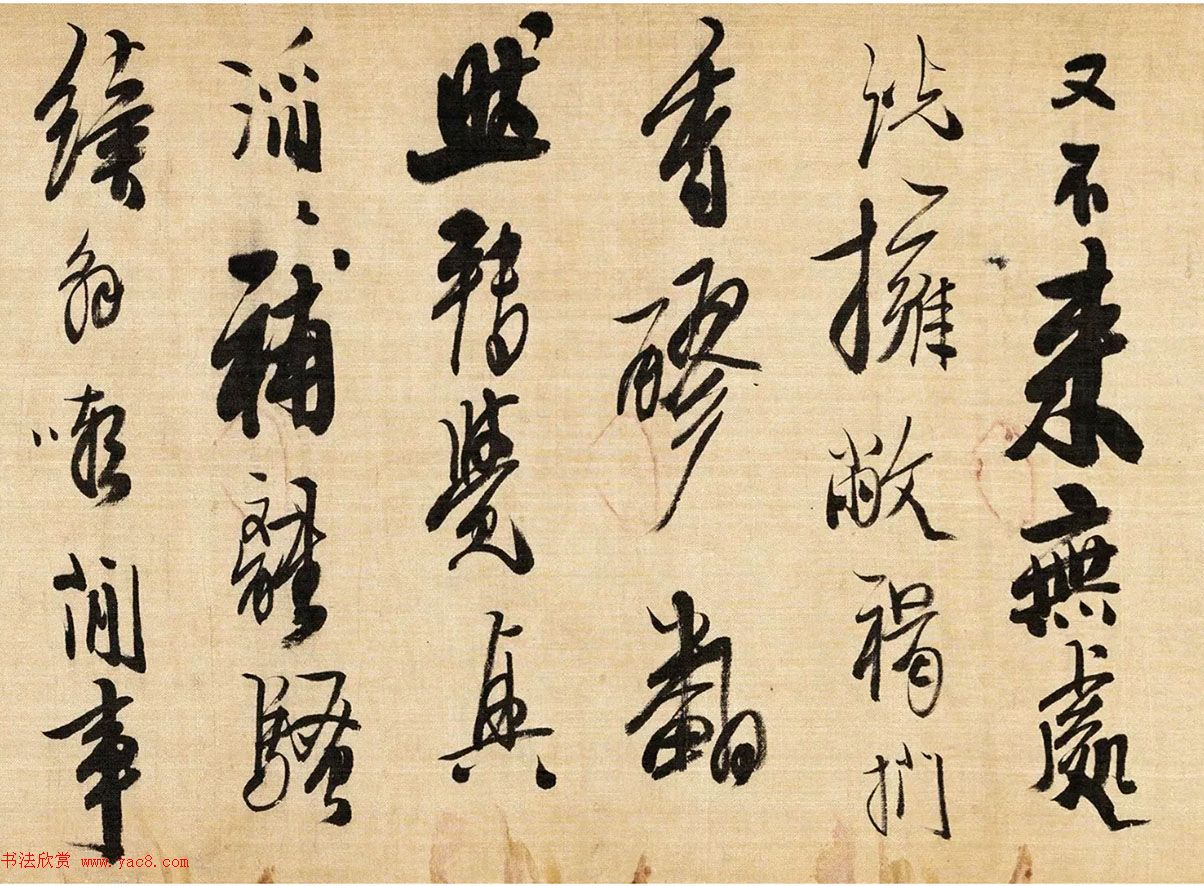 又不來無處
説擁敝褐捫
香醪翻
然轉覺真
滔、補離騷
續嗽閒事
书法欣赏 www.yac8.com